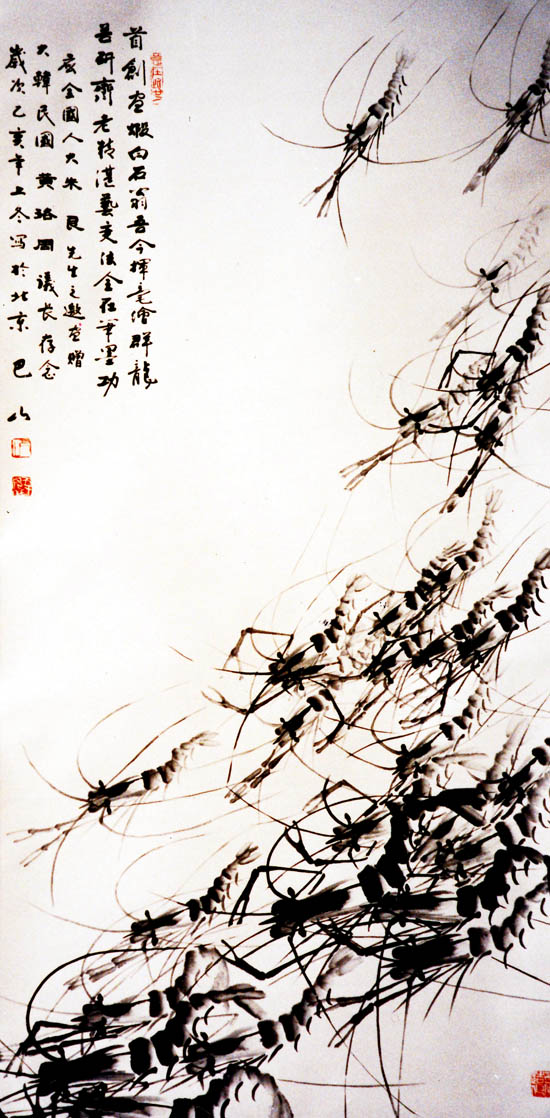 首創画蝦白石翁吾今揮毫繪群龍
昔研齋老精湛藝変法全在筆墨功
應全國人大朱良先生之邀画贈
大韓民國黄珞周議長存念
歲次乙亥年上冬写於北京巴山